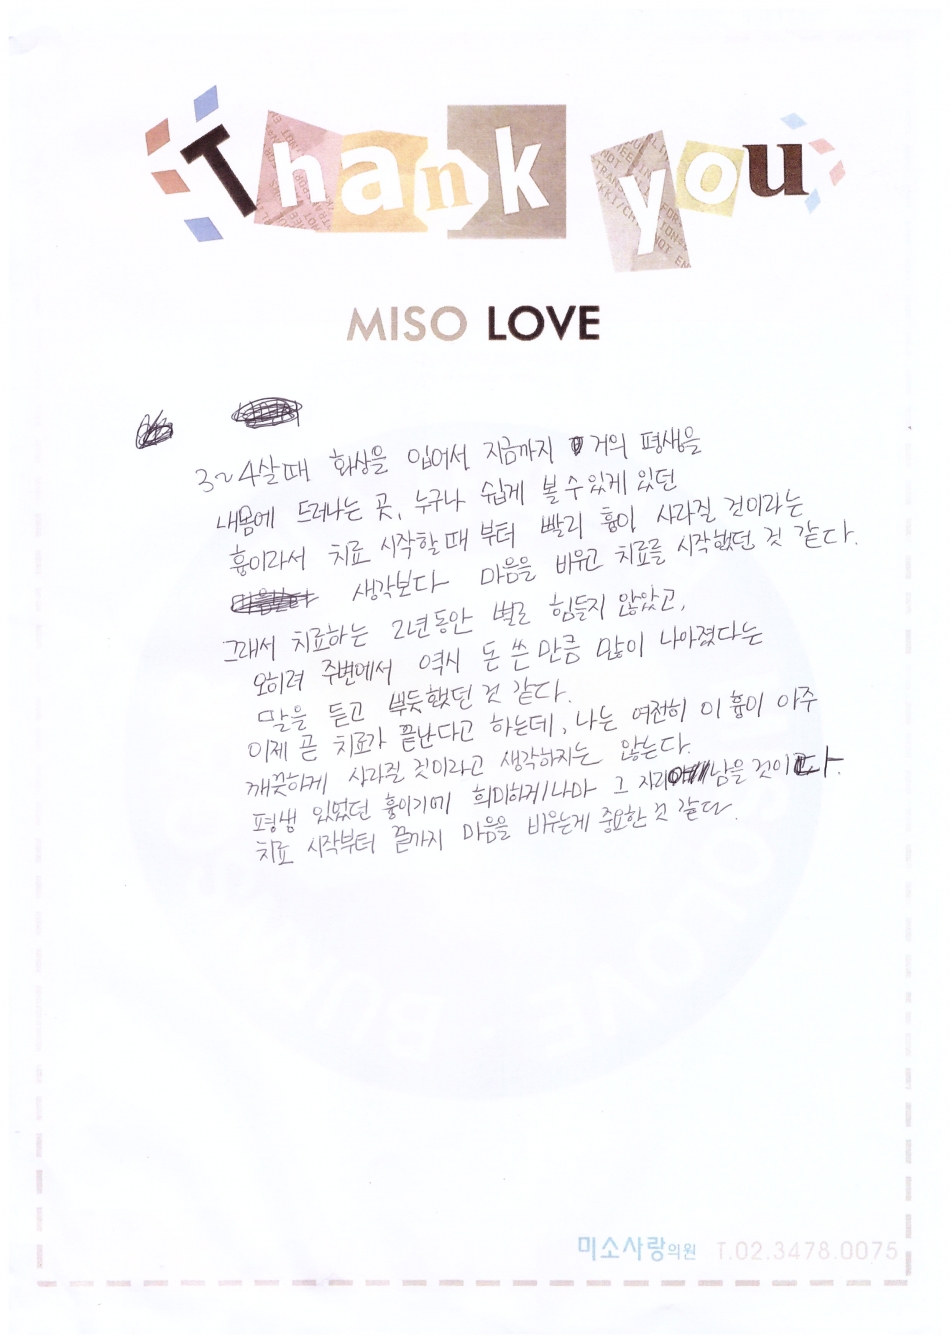 Thank you
MISO LOVE
3~4살때 화상을 입어서 지금까지 거의 평생을
내몸에 드러나는 곳, 누구나 쉽게 볼 수 있게 있던
흉이라서 치료 시작할 때 부터 빨리 흉이 사라질 것이라는
생각보다 마음을 비우고 치료를 시작했던 것 같다.
그래서 치료하는 2년동안 별로 힘들지 않았고,
오히려 주변에서 역시 돈 쓴 만큼 많이 나아졌다는
말을 듣고 뿌듯했던 것 같다.
이제 곧 치료가 끝난다고 하는데, 나는 여전히 이 흉이 아주
깨끗하게 사라질 것이라고 생각하지는 않는다.
평생 있었던 흉이기에 희미하게나마 그 자리 남을 것이다.
치료 시작부터 끝까지 마음을 비우는게 중요한 것 같다.
미소사랑의원 T.02.3478.0075